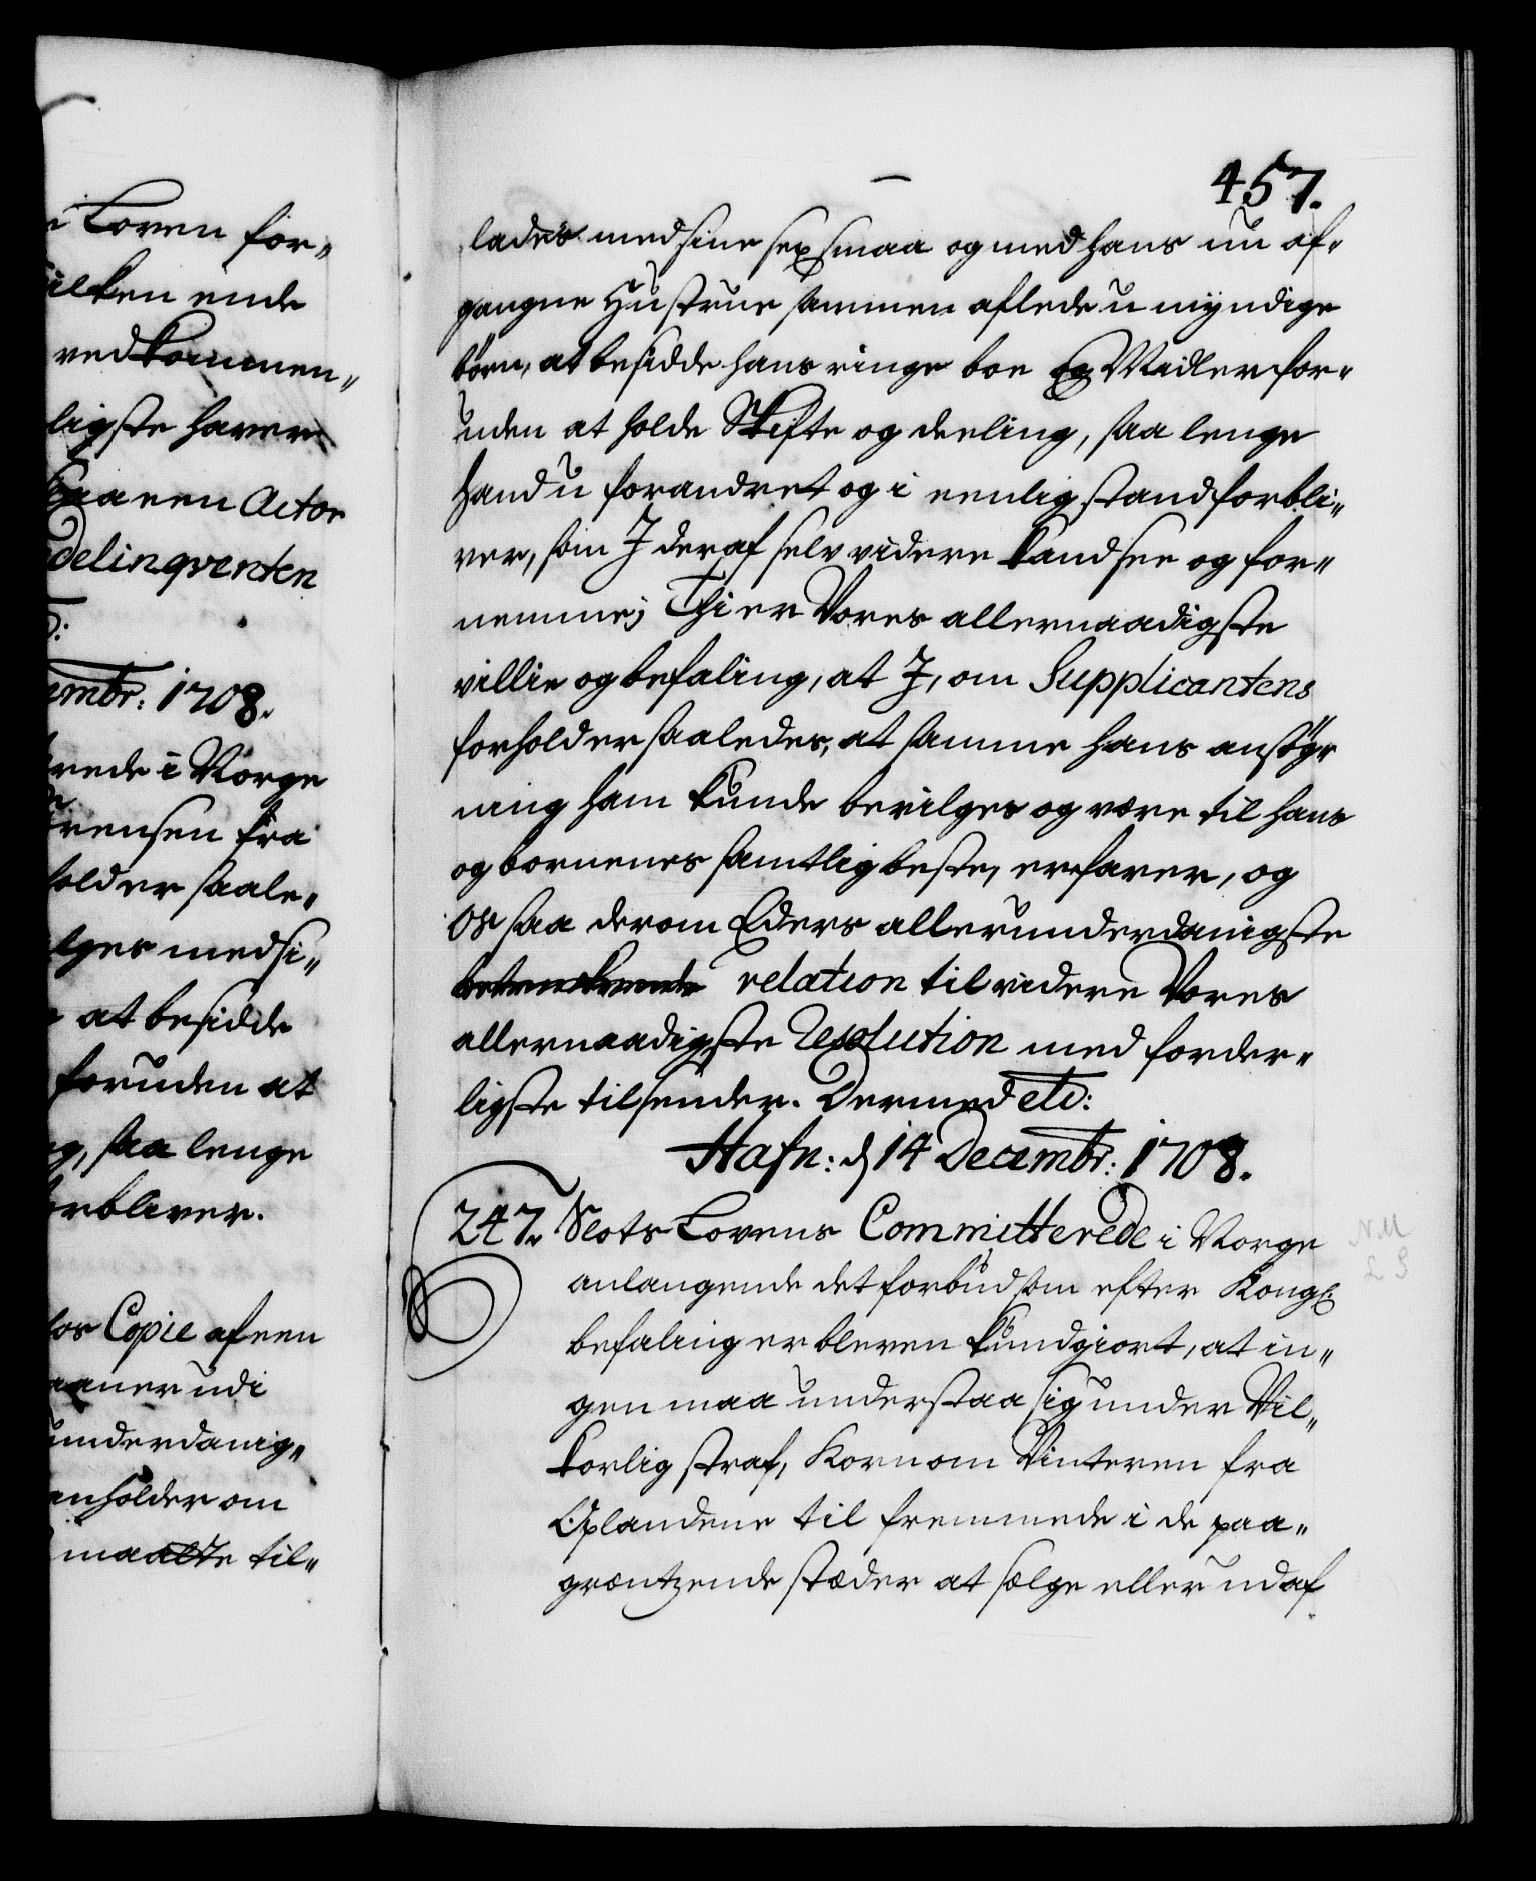 e Loven for=
ilken ende
ved kommen=
ligste haver
paa een Actor
delinqventen
embr: 1708.
rede i Norge
rensen fra
holder saale=
lges med si=
at besidde
foruden at
g, saa lenge
rbliver.
os Copie af een
aaner udi
underdanig=
enholder om
maatte til=
457.
lades med sine sex smaa og med hans nu af=
gangne Hustrue sammen aflede u myndige
börn, at besidde hans ringe boe og Midler for=
uden at holde Skifte og deeling, saa lenge
hand u forandret og i eenlig stand forbli=
ver, som J deraf selv videre kand see og for=
nemme; Thi er Vores allernaadigste
villie og befaling, at J, om Supplicantens
forholder saaledes, at samme hans ansög=
ning ham kunde bevilges og være til hans
og bornenes samtlig beste, erfarer, og
Os saa derom Eders allerunderdanigste
betenckende relation til videre Vores
allernaadigste Resolution med forder=
ligste tilsender. Dermed etc:
Hafn: d 14 Decembr: 1708.
247. Slots Lovens Committerede i Norge
N.M
L S
anlangende det forbud som efter Kongl:
befaling er bleven kundgiort, at in=
gen maa understaa sig under Vil=
korlig straf, Korn om Vinteren fra
Oplandene til fremmede i de paa=
græntzende stæder at sælge eller ud af